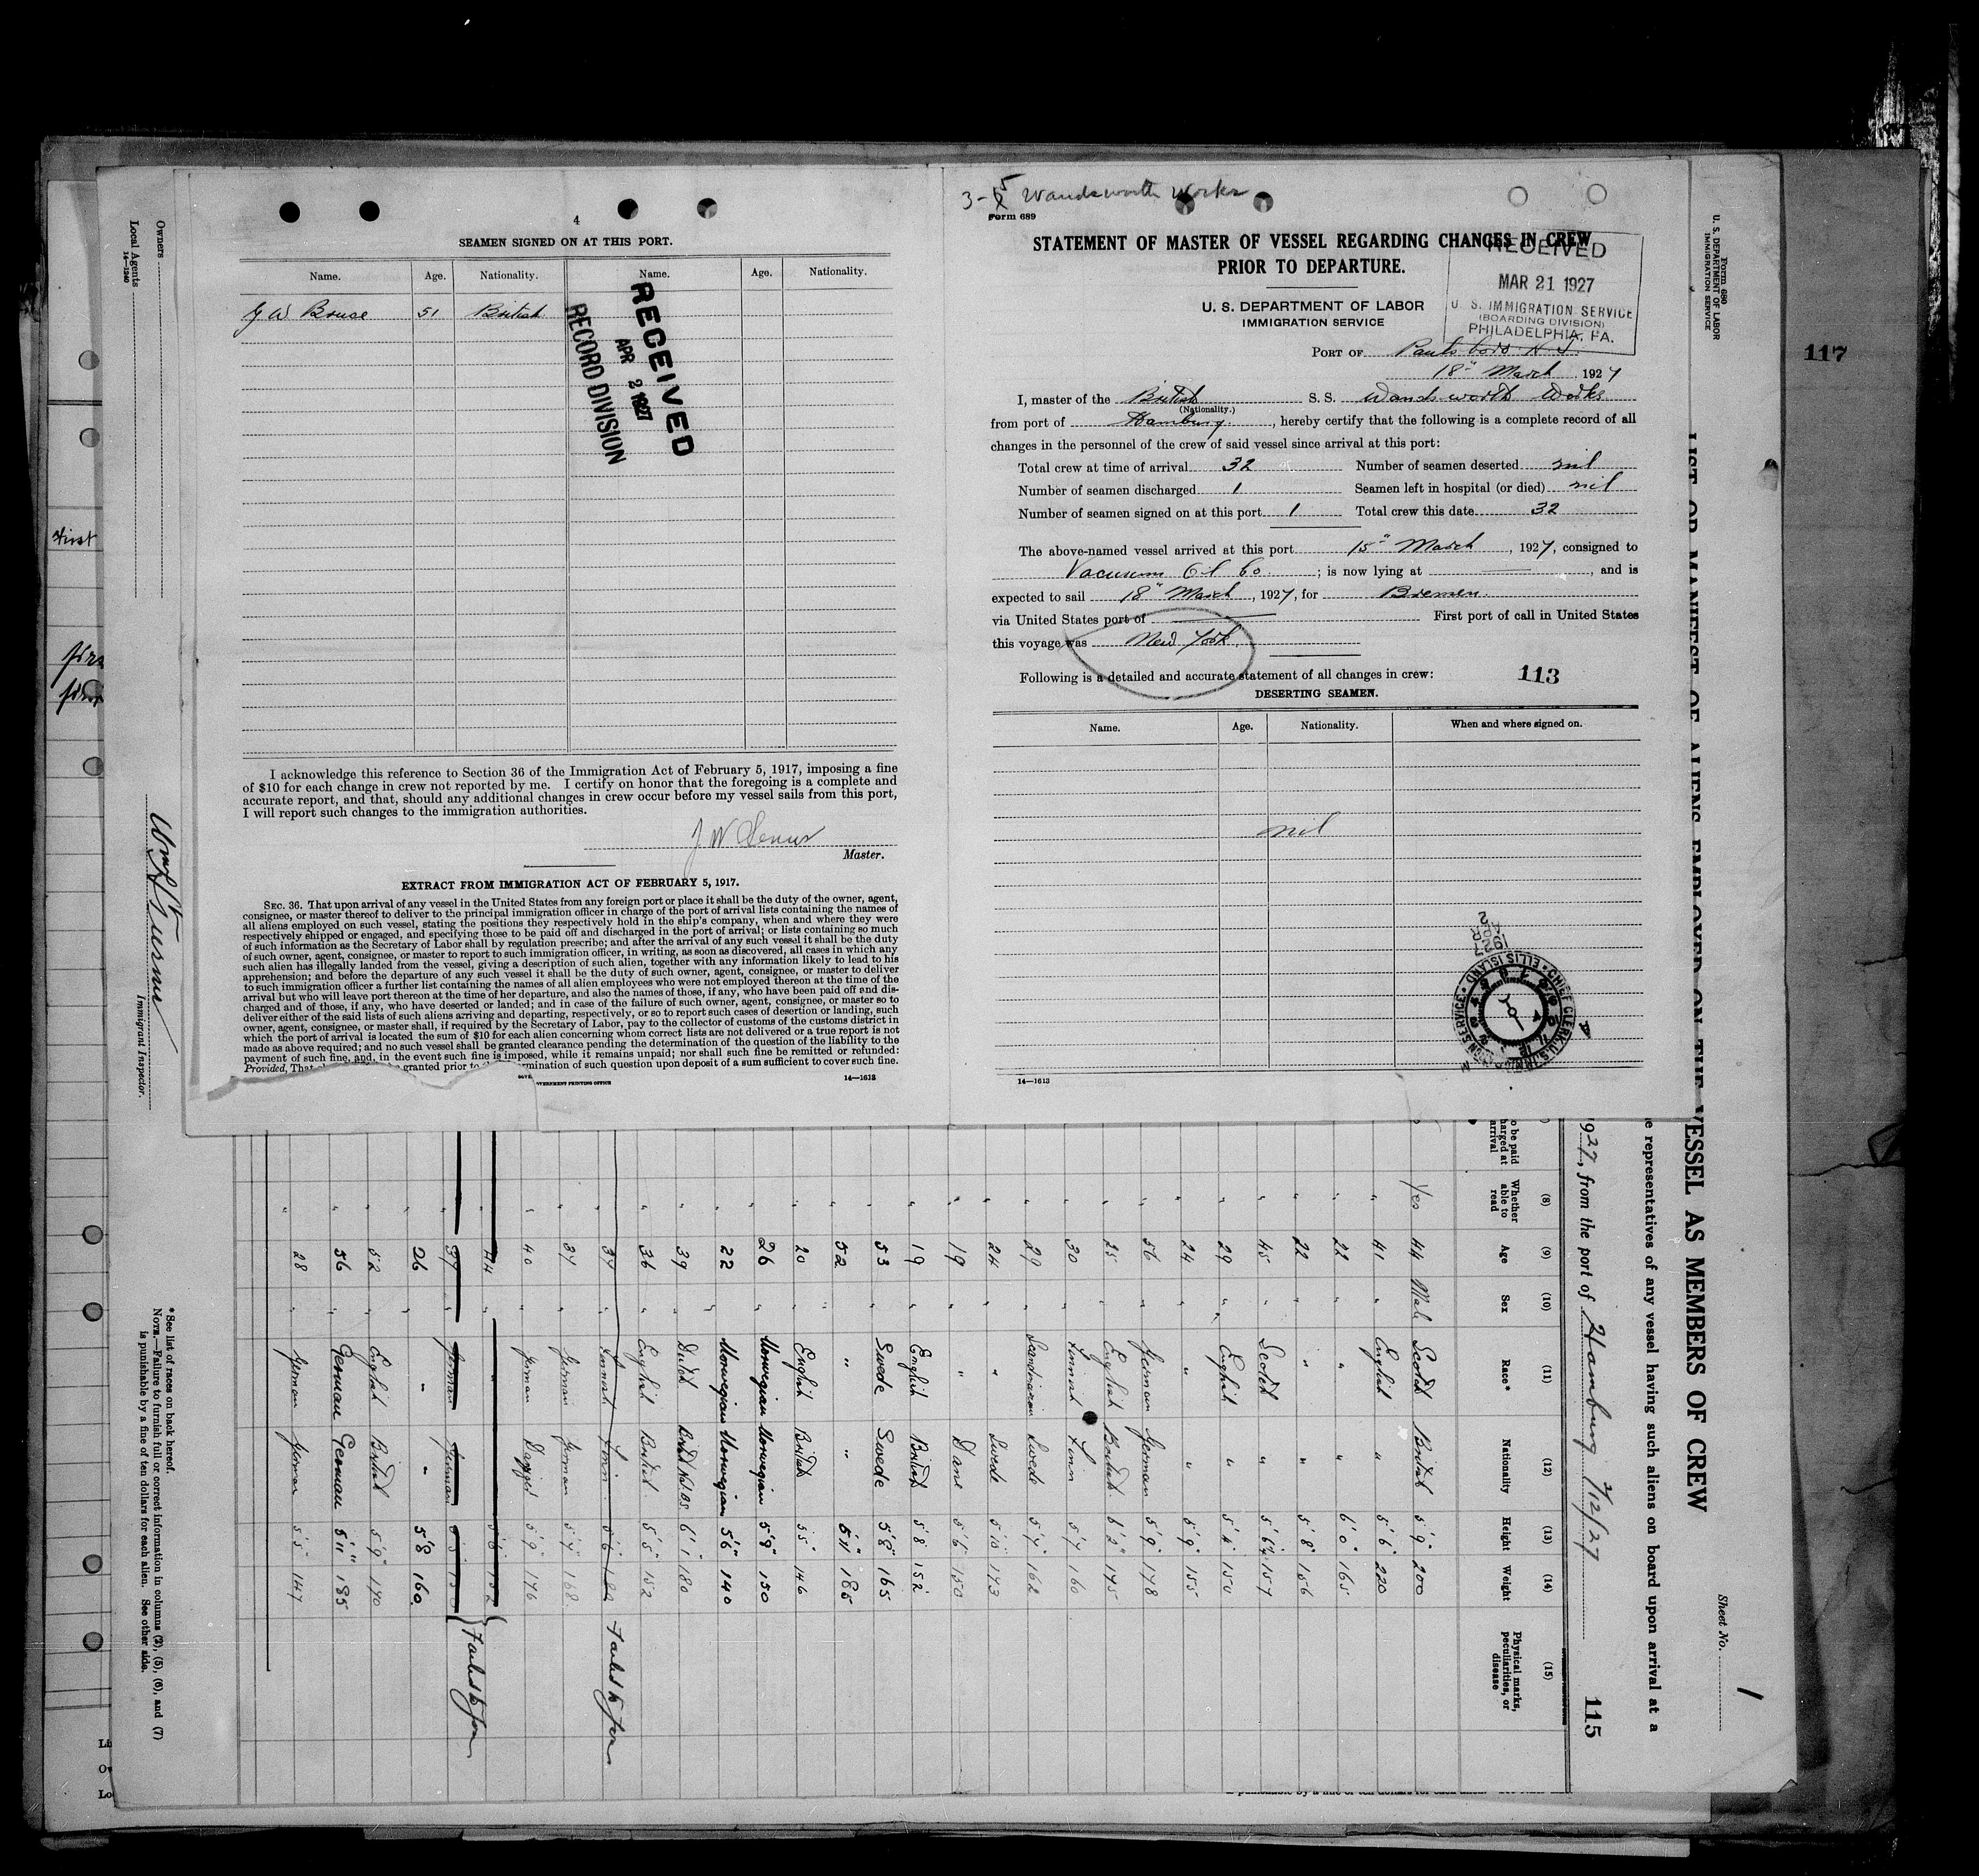 4
SEAMEN SIGNED ON AT THIS PORT.
Name. Age. Nationality. Name. Age. Nationality.
51 British
RECEIVED
APR 2 1927
RECORD DIVISION
I acknowledge this reference to Section 36 of the Immigration Act of February 5, 1917, imposing a fine
of $10 for each change in crew not reported by me. I certify on honor that the foregoing is a complete and
accurate report, and that, should any additional changes in crew occur before my vessel sails from this port,
I will report such changes to the immigration authorities.
Master.
EXTRACT FROM IMMIGRATION ACT OF FEBRUARY 5, 1917.
SEC. 36. That upon arrival of any vessel in the United States from any foreign port or place it shall be the duty of the owner, agent,
consignee, or master thereof to deliver to the principal immigration officer in charge of the port of arrival lists containing the names of
all aliens employed on such vessel, stating the positions they respectively hold in the ship's company, when and where they were
respectively shipped or engaged, and specifying those to be paid off and discharged in the port of arrival; or lists containing so much
of such information as the Secretary of Labor shall by regulation prescribe; and after the arrival of any such vessel it shall be the duty
of such owner, agent, consignee, or master to report to such immigration officer, in writing, as soon as discovered, all cases in which any
such alien has illegally landed from the vessel, giving a description of such alien, together with any information likely to lead to his
apprehension; and before the departure of any such vessel it shall be the duty of such owner, agent, consignee, or master to deliver
to such immigration officer a further list containing the names of all alien employees who were not employed thereon at the time of the
arrival but who will leave port thereon at the time of her departure, and also the names of those, if any, who have been paid off and dis-
charged and of those, if any, who have deserted or landed; and in case of the failure of such owner, agent, consignee, or master so to
deliver either of the said lists of such aliens arriving and departing, respectively, or so to report such cases of desertion or landing, such
owner, agent, consignee, or master shall, if required by the Secretary of Labor, pay to the collector of customs of the customs district in
which the port of arrival is located the sum of $10 for each alien concerning whom correct lists are not delivered or a true report is not
made as above required; and no such vessel shall be granted clearance pending the determination of the question of the liability to the
payment of such fine, and, in the event such fine is imposed, while it remains unpaid; nor shall such fine be remitted or refunded:
Provided, That granted prior to rmination of such question upon deposit of a sum sufficient to cover such fine.
VERNMENT PRINTING OFFICE
14—1613
3-5 Wandsworth Works
Form 689
STATEMENT OF MASTER OF VESSEL REGARDING CHANGES IN CREW
PRIOR TO DEPARTURE.
U. S. DEPARTMENT OF LABOR
IMMIGRATION SERVICE
RECEIVED
MAR 21 1927
U. S. IMMIGRATION SERVICE
(BOARDING DIVISION)
PHILADELPHIA, PA.
PORT OF Paulsboro N J.
18" March 1927
I, master of the British S. S. Wandsworth Works
(Nationality.)
from port of Hamburg, hereby certify that the following is a complete record of all
changes in the personnel of the crew of said vessel since arrival at this port:
Total crew at time of arrival 32 Number of seamen deserted nil
Number of seamen discharged 1 Seamen left in hospital (or died) nil
Number of seamen signed on at this port 1 Total crew this date 32
The above-named vessel arrived at this port 15" March, 1927, consigned to
Vacuum Oil Co. ; is now lying at , and is
expected to sail 18" March, 1927, for Bremen.
via United States port of First port of call in United States
this voyage was New York.
Following is a detailed and accurate statement of all changes in crew: 113
DESERTING SEAMEN.
Name. Age. Nationality. When and where signed on.
nil
CHIEF CLERK U.S. IMMIGRATION SERVICE • ELLIS ISLAND
14—1613
Owners
Local Agents
14—1240
Immigrant Inspector.
first
117
Form 680
U. S. DEPARTMENT OF LABOR
IMMIGRATION SERVICE
Sheet No. 1
LIST OR MANIFEST OF ALIENS EMPLOYED ON THE VESSEL AS MEMBERS OF CREW
e representatives of any vessel having such aliens on board upon arrival at a
927, from the port of Hamburg 2/12/27
115
(8) (9) (10) (11) (12) (13) (14) (15)
Whether able to read Age Sex Race* Nationality Height Weight Physical marks, peculiarities, or disease
Yes 44 Male Scotch British 5'9" 200
" 41 " English " 5'6" 220
" 22 " " " 6'0" 165
" 22 " " " 5'8" 156
" 45 " Scotch " 5'6½ 157
" 29 " English " 5'6" 150
" 24 " " " 5'9" 155
" 56 " German German 5'9" 178
" 25 " English British 6'2" 175
" 30 " Finnish Finn 5'7" 160
" 29 " Scandinavian Swede 5'7" 162
" 24 " " Swede 5'10 173
" 19 " " Dane 5'6" 150
" 19 " English British 5'8 152
" 53 " Swede Swede 5'8" 165
" 52 " " " 5'11" 185
" 20 " English British 5'5" 146
" 26 " Norwegian Norwegian 5'8" 150
" 22 " Norwegian Norwegian 5'6" 140
" 39 " Dutch 6'1" 180
" 36 " English British 5'5" 152
" 37 " Finnish Finn 5'6" Failed to join
" 37 " German German 5'7" 168
" 40 " German Danzig 5'9" 176
" 44 5'6" 152
" 37 " German German 5'5" 150 Failed to join
" 26 " " " 5'8 160
" 52 " English British 5'9" 170
" 56 " German German 5'11" 185
" 28 " German German 5'5" 147
*See list of races on back hereof.
NOTE.—Failure to furnish full or correct information in columns (2), (5), (6), and (7)
is punishable by a fine of ten dollars for each alien. See other side.